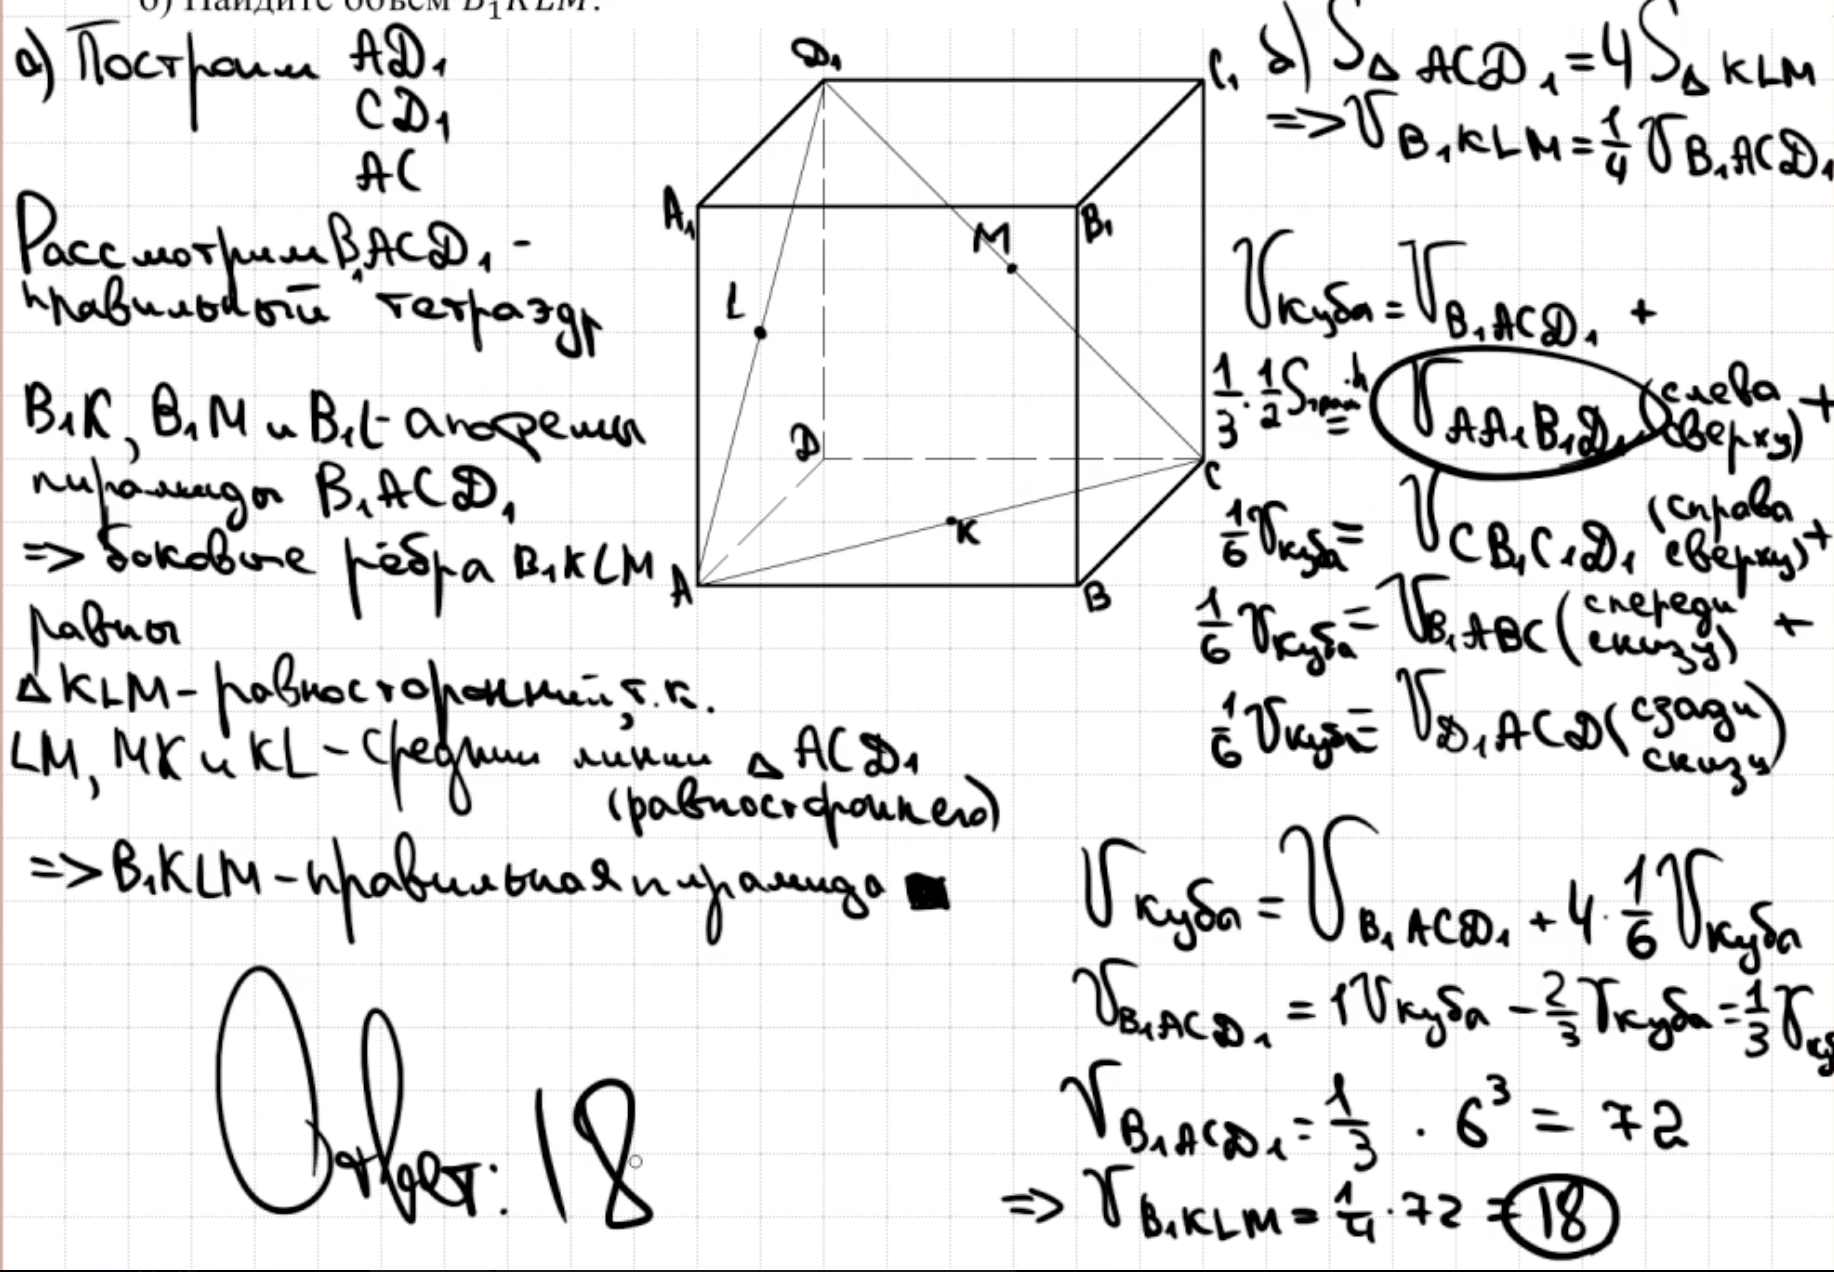 б) Найдите объём B₁KLM.
а) Построим AD₁
CD₁
AC
Рассмотрим B₁ACD₁ -
правильный тетраэдр
B₁K, B₁M и B₁L - апофемы
пирамиды B₁ACD₁
=> боковые рёбра B₁KLM
равны
△KLM - равносторонний, т.к.
LM, MK и KL - средние линии △ ACD₁
(равностороннего)
=> B₁KLM - правильная пирамида ■
Ответ: 18
D₁
C₁
A₁
B₁
M
L
D
C
K
A
B
б) S△ ACD₁ = 4S△ KLM
=> V B₁KLM = 1/4 V B₁ACD₁
V куба = V B₁ACD₁ +
1/3 · 1/2 S грани · h = V AA₁B₁D₁ (слева сверху) +
1/6 V куба = V CB₁C₁D₁ (справа сверху) +
1/6 V куба = V B₁ABC (спереди снизу) +
1/6 V куба = V D₁ACD (сзади снизу)
V куба = V B₁ACD₁ + 4 · 1/6 V куба
V B₁ACD₁ = 1V куба - 2/3 V куба = 1/3 V ку
V B₁ACD₁ = 1/3 · 6³ = 72
=> V B₁KLM = 1/4 · 72 = 18